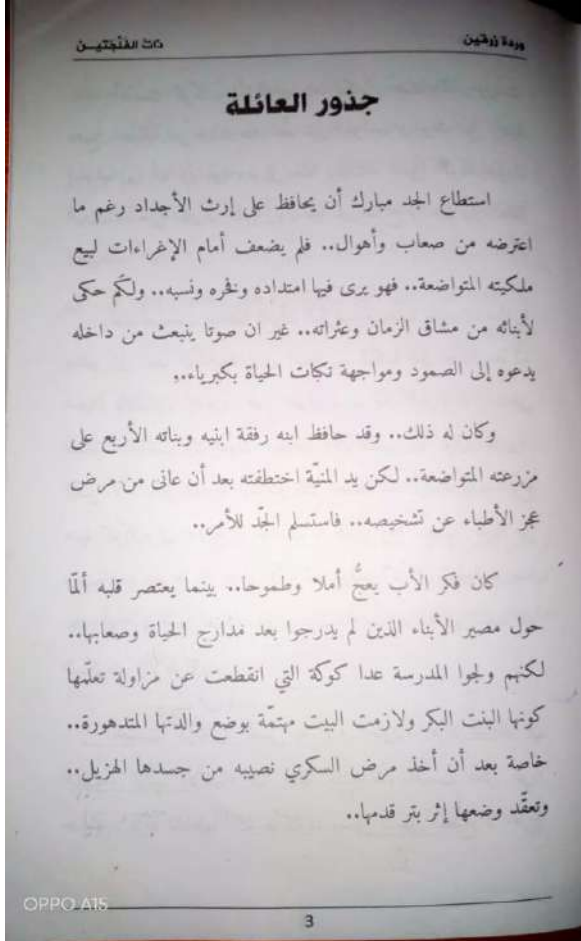 وردة زرقين
ذات الفنجتيـن
جذور العائلة
استطاع الجد مبارك أن يحافظ على إرث الأجداد رغم ما
اعترضه من صعاب وأهوال.. فلم يضعف أمام الإغراءات لبيع
ملكيته المتواضعة.. فهو يرى فيها امتداده وفخره ونسبه.. ولكَم حكى
لأبنائه من مشاق الزمان وعثراته.. غير ان صوتا ينبعث من داخله
يدعوه إلى الصمود ومواجهة نكبات الحياة بكبرياء..
وكان له ذلك.. وقد حافظ ابنه رفقة ابنيه وبناته الأربع على
مزرعته المتواضعة.. لكن يد المنيّة اختطفته بعد أن عانى من مرض
عجز الأطباء عن تشخيصه.. فاستسلم الجدّ للأمر..
كان فكر الأب يعجُّ أملا وطموحا.. بينما يعتصر قلبه ألمًا
حول مصير الأبناء الذين لم يدرجوا بعد مدارج الحياة وصعابها..
لكنهم ولجوا المدرسة عدا كوكة التي انقطعت عن مزاولة تعلّمها
كونها البنت البكر ولازمت البيت مهتمّة بوضع والدتها المتدهورة..
خاصة بعد أن أخذ مرض السكري نصيبه من جسدها الهزيل..
وتعقّد وضعها إثر بتر قدمها..
OPPO A15
3